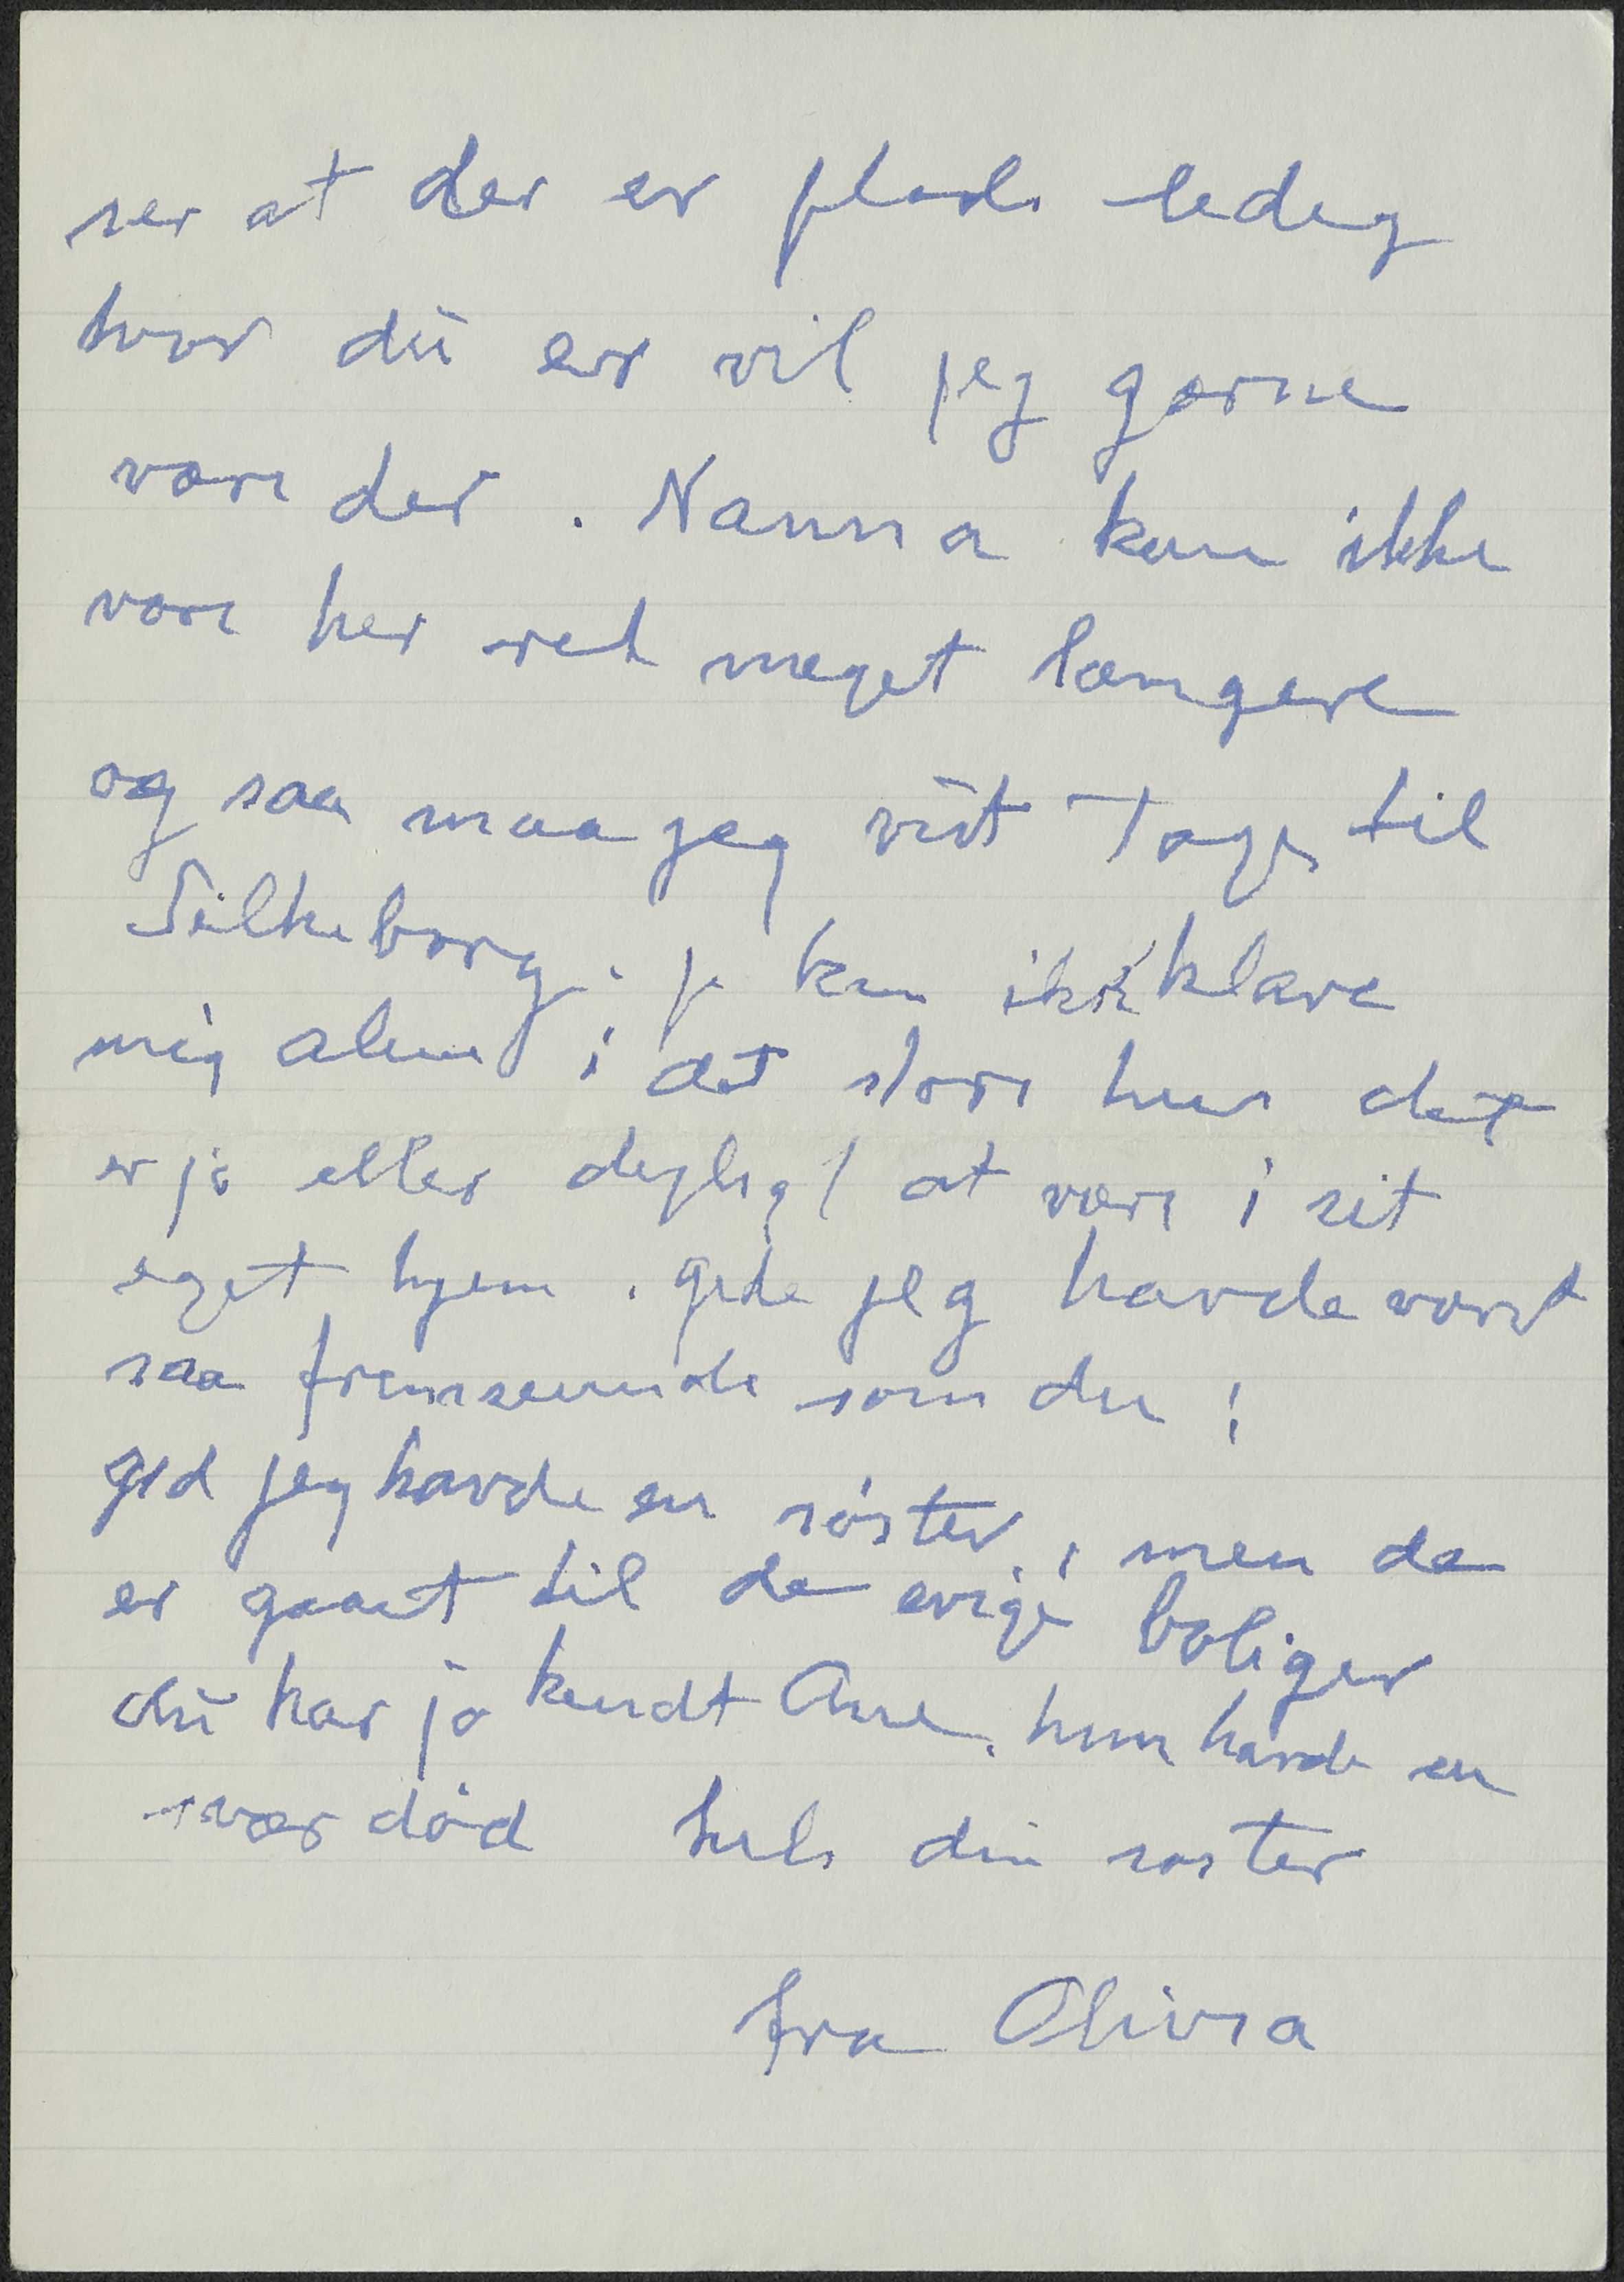 ser at der er plads ledig
hvor du er vil jeg gærne
være der. Nanna kan ikke
være her ret meget længere
og saa maa jeg vist tage til
Silkeborg. je kan ikke klare
mig alene i det store hus det
er jo eller dejligt at være i sit
eget hjem. gide jeg havde været
saa fremseende som du!
gid jeg havde en søster, men de
er gaaet til de evige boliger
du har jo kendt Ane, hun havde en
svær död hils din søster
fra Olivia